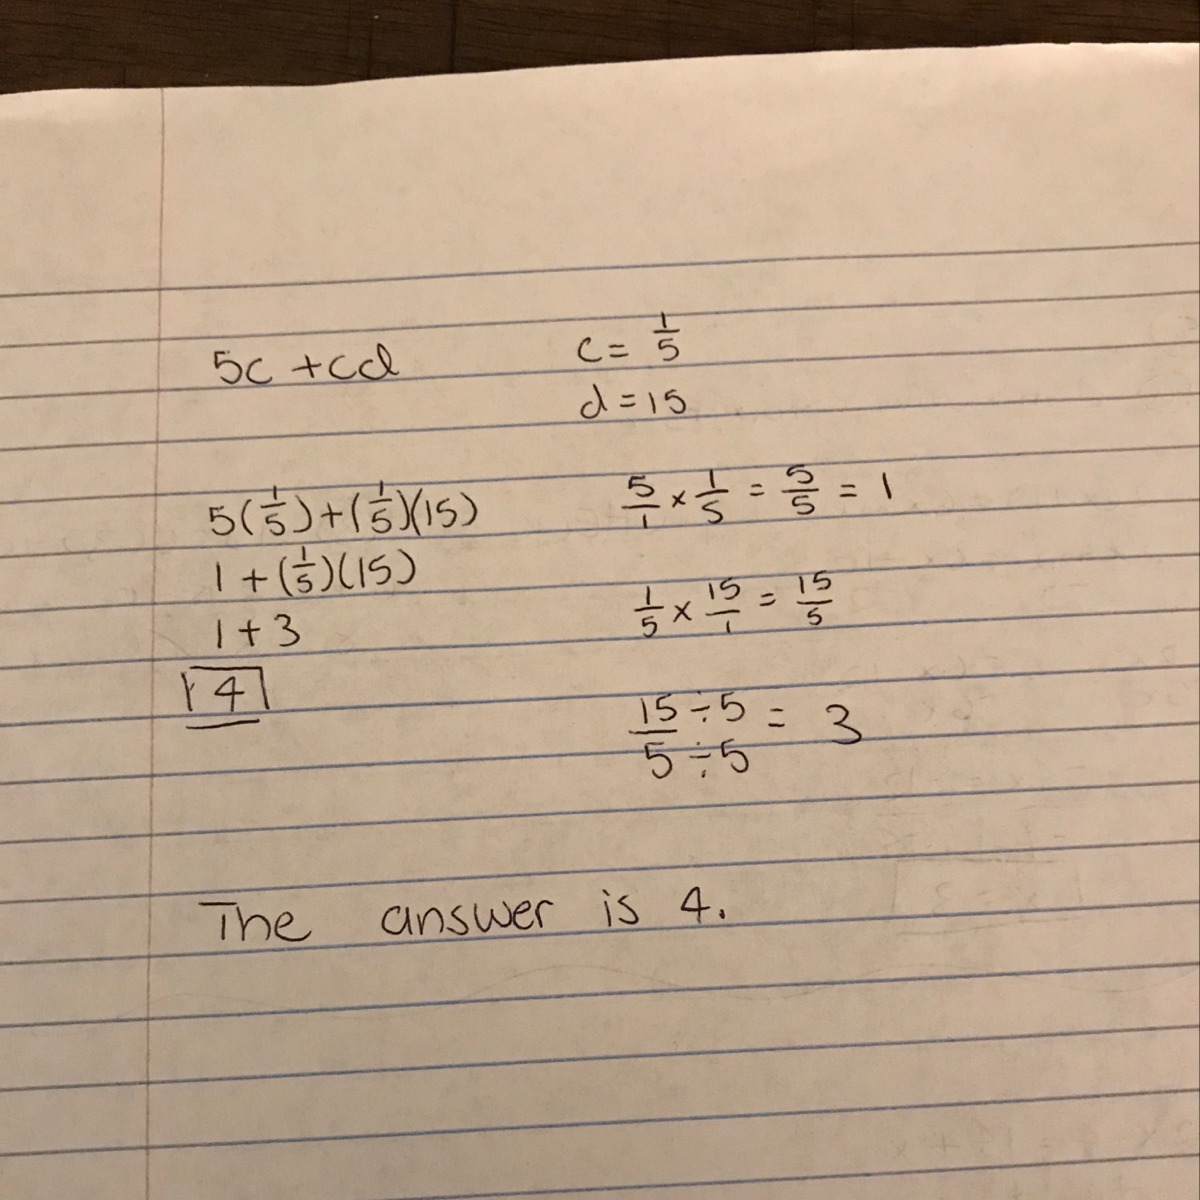 5c + cd
c = 1/5
d = 15
5(1/5) + (1/5)(15)
1 + (1/5)(15)
1 + 3
4
5/1 × 1/5 = 5/5 = 1
1/5 × 15/1 = 15/5
15 ÷ 5 / 5 ÷ 5 = 3
The answer is 4.